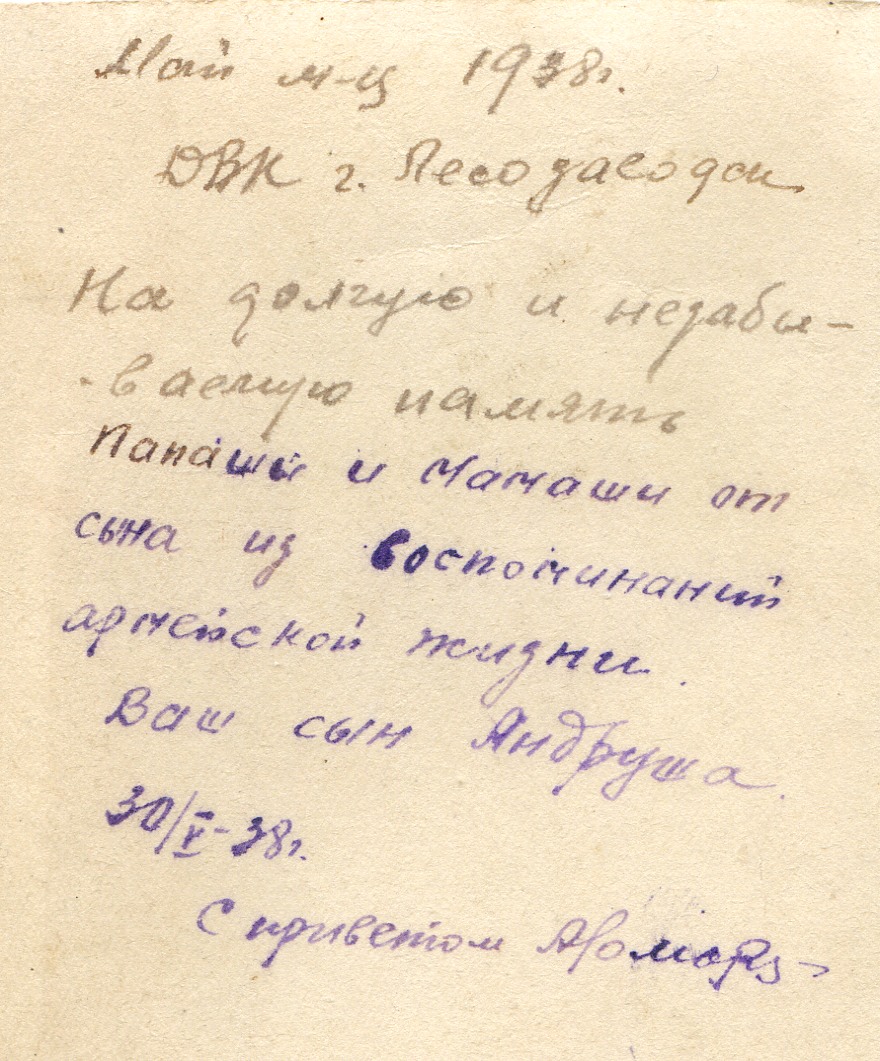 Май м-ц 1938г.
ДВК г. Лесозаводск
На долгую и незабы-
-ваемую память
Папаши и Мамаши от
сына из воспоминаний
армейской жизни.
Ваш сын Андруша.
30/V-38г.
С приветом